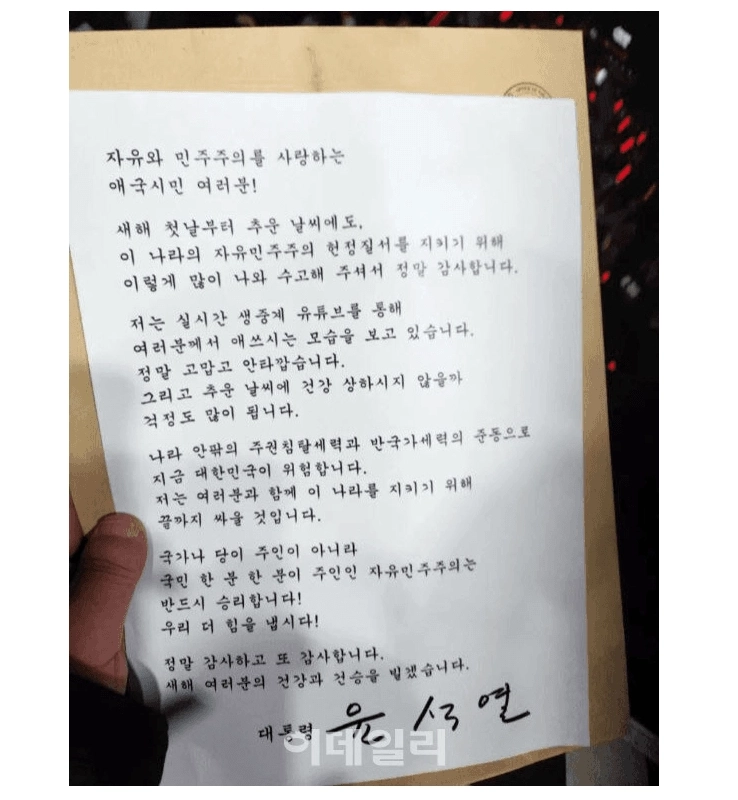 자유와 민주주의를 사랑하는
애국시민 여러분!
새해 첫날부터 추운 날씨에도,
이 나라의 자유민주주의 헌정질서를 지키기 위해
이렇게 많이 나와 수고해 주셔서 정말 감사합니다.
저는 실시간 생중계 유튜브를 통해
여러분께서 애쓰시는 모습을 보고 있습니다.
정말 고맙고 안타깝습니다.
그리고 추운 날씨에 건강 상하시지 않을까
걱정도 많이 됩니다.
나라 안팎의 주권침탈세력과 반국가세력의 준동으로
지금 대한민국이 위험합니다.
저는 여러분과 함께 이 나라를 지키기 위해
끝까지 싸울 것입니다.
국가나 당이 주인이 아니라
국민 한 분 한 분이 주인인 자유민주주의는
반드시 승리합니다!
우리 더 힘을 냅시다!
정말 감사하고 또 감사합니다.
새해 여러분의 건강과 건승을 빌겠습니다.
대통령 윤석열
이데일리